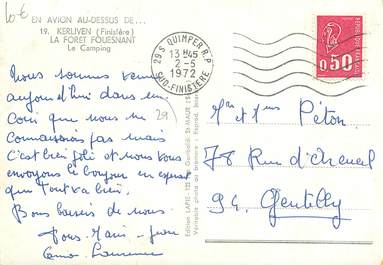 10€
EN AVION AU-DESSUS DE...
19. KERLIVEN (Finistère)
LA FORET FOUESNANT
Le Camping
29 S QUIMPER R.P.
13H45
2-5
1972
SUD-FINISTERE
0,50
Nous sommes venus
aujourd'hui dans un
Coin que nous ne
connaissons pas mais
29
C'est bien joli et nous vous
envoyons le bonjour en espérant
que tout va bien.
Bons baisers de nous.
Mr et Mme Péton
78 Rue d'Arcueil
94. Gentilly